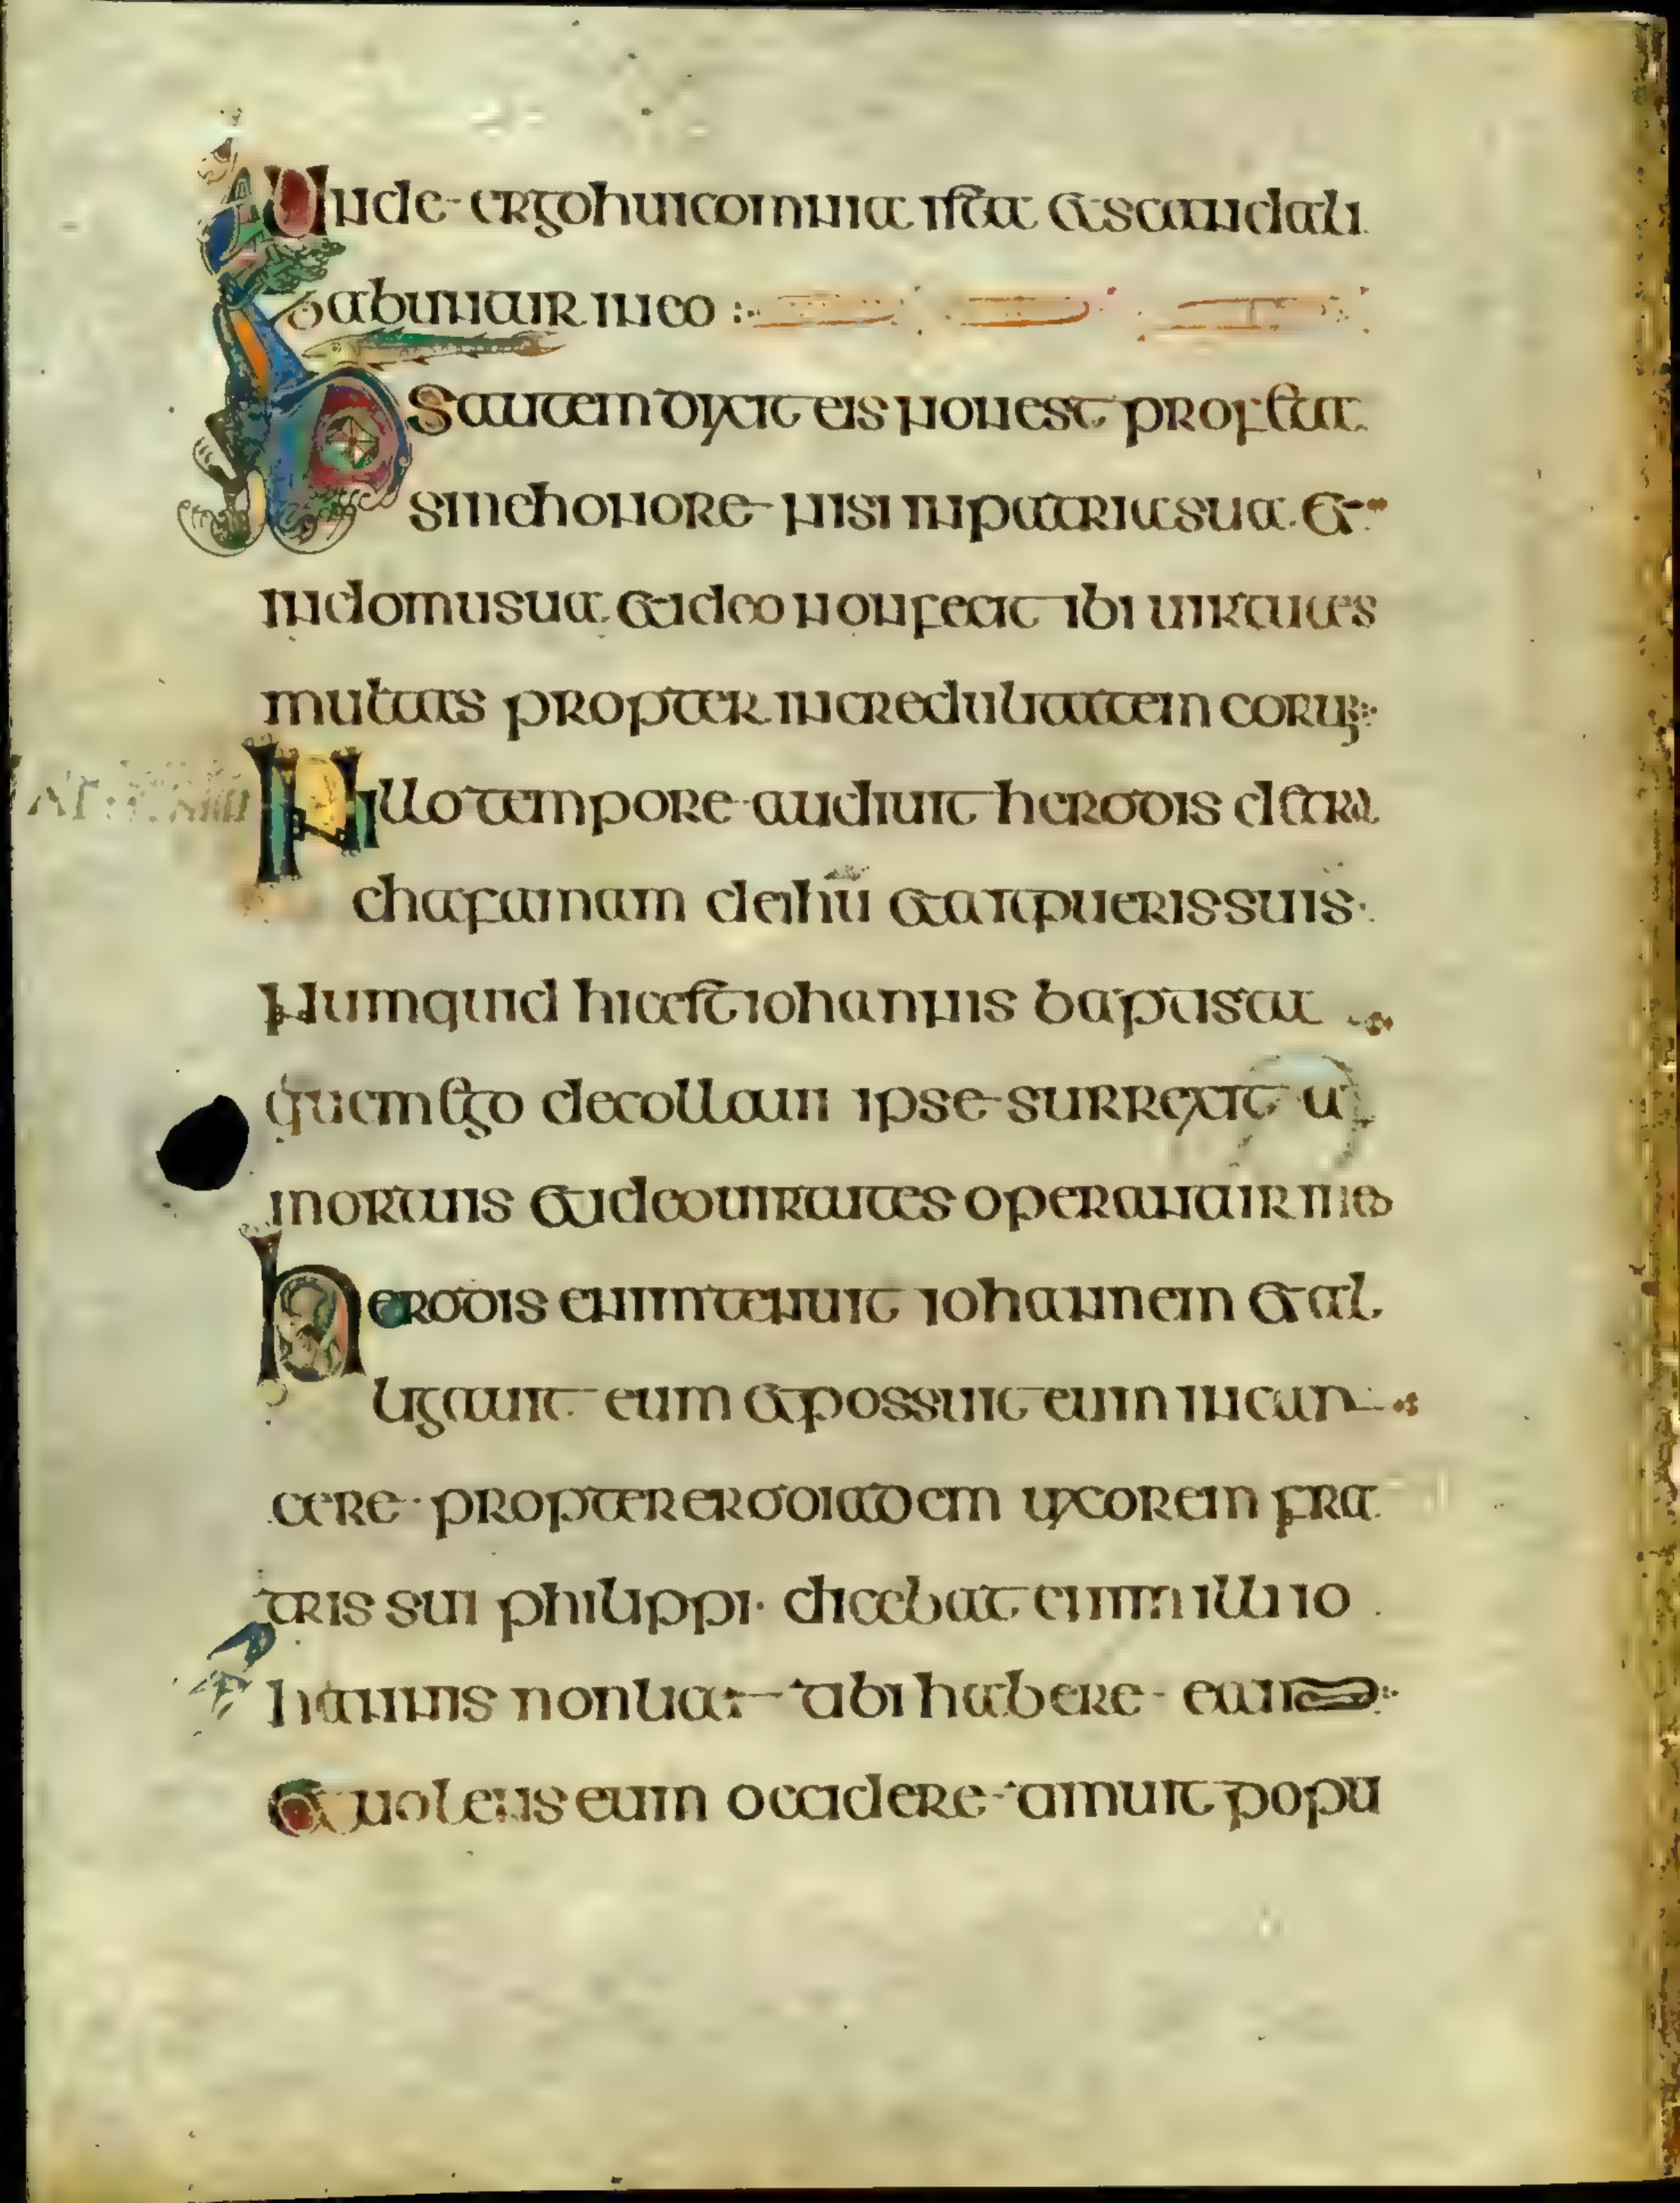 Unde ergo huic omnia ista et scandali
zabantur in eo
ihs autem dixit eis non est profeta
sine honore nisi in patria sua et
in domu sua et ideo non fecit ibi uirtutes
multas propter incredulitatem eorum
In illo tempore audiuit herodis detra
cha famam de ihu et ait pueris suis
Numquid hic est iohannis baptista
quem ego decollaui ipse surrexit a
mortuis et ideo uirtutes operantur in eo
herodis enim tenuit iohannem et al
ligauit eum et possuit eum in car
cere propter erodiadem uxorem fra
tris sui philippi dicebat enim illi io
hannis non licet tibi habere eam
Et uolens eum occidere timuit popu